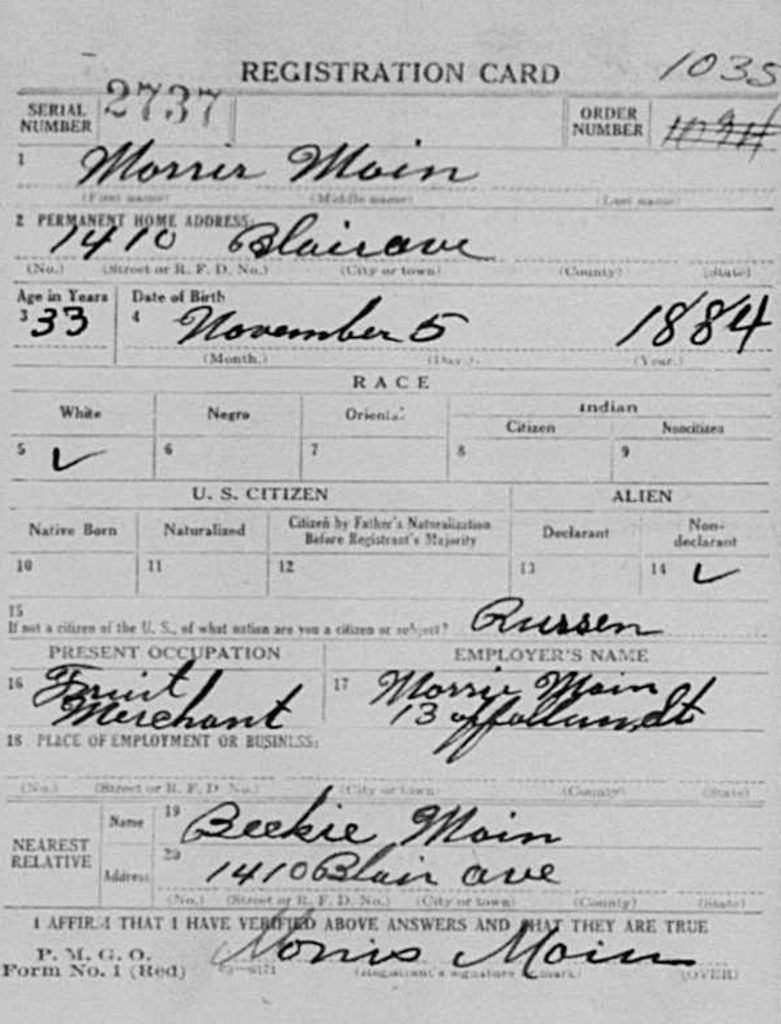 REGISTRATION CARD 1035
SERIAL NUMBER 2737 ORDER NUMBER 1034
1 Morris Moin
(First name) (Middle name) (Last name)
2 PERMANENT HOME ADDRESS:
1410 Blair ave
(No.) (Street or R. F. D. No.) (City or town) (County) (State)
Age in Years Date of Birth
3 33 4 November 5 1884
(Month.) (Day.) (Year.)
RACE
White Negro Oriental Indian
Citizen Noncitizen
5 6 7 8 9
U. S. CITIZEN ALIEN
Native Born Naturalized Citizen by Father's Naturalization Before Registrant's Majority Declarant Non-declarant
10 11 12 13 14
15
If not a citizen of the U. S., of what nation are you a citizen or subject? Russen
PRESENT OCCUPATION EMPLOYER'S NAME
16 Fruit 17 Morris Moin
Merchant 13
18 PLACE OF EMPLOYMENT OR BUSINESS:
(No.) (Street or R. F. D. No.) (City or town) (County) (State)
NEAREST RELATIVE
Name 19 Beckie Moin
Address 20 1410 Blair ave
(No.) (Street or R. F. D. No.) (City or town) (County) (State)
I AFFIRM THAT I HAVE VERIFIED ABOVE ANSWERS AND THAT THEY ARE TRUE
P. M. G. O.
Form No. 1 (Red) Morris Moin
(Registrant's signature or mark) (OVER)